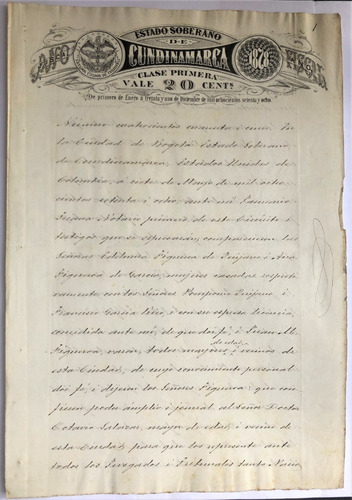 1
ESTADO SOBERANO
DE
CUNDINAMARCA
CLASE PRIMERA
VALE 20 CENTS
1878
De primero de Enero a treinta y uno de Diciembre de mil ochocientos setenta y ocho.
Número cuatrocientos cuarenta i cinco. En
la Ciudad de Bogotá Estado Soberano
de Cundinamarca, Estados Unidos de
Colombia, á siete de Mayo de mil ocho-
cientos setenta i ocho, ante mí
Notario primero de este Circuito i
testigos que se espresarán, comparecieron las
Señoras Figueroa de i Ana
Figueroa de García, mujeres casadas respecti-
vamente con los Señores Pomponio i
Francisco García i con su espresa licencia,
concedida ante mí, de que doi fé, i
Figueroa, varón, todos mayores de edad i vecinos de
esta Ciudad, de cuyo conocimiento personal
doi fé, i dijeron los Señores Figueroa: que con-
fieren poder amplio i jeneral al Señor Doctor
Octavio Salazar, mayor de edad, i vecino de
esta Ciudad, para que los represente ante
todos los Juzgados i Tribunales tanto Nacio